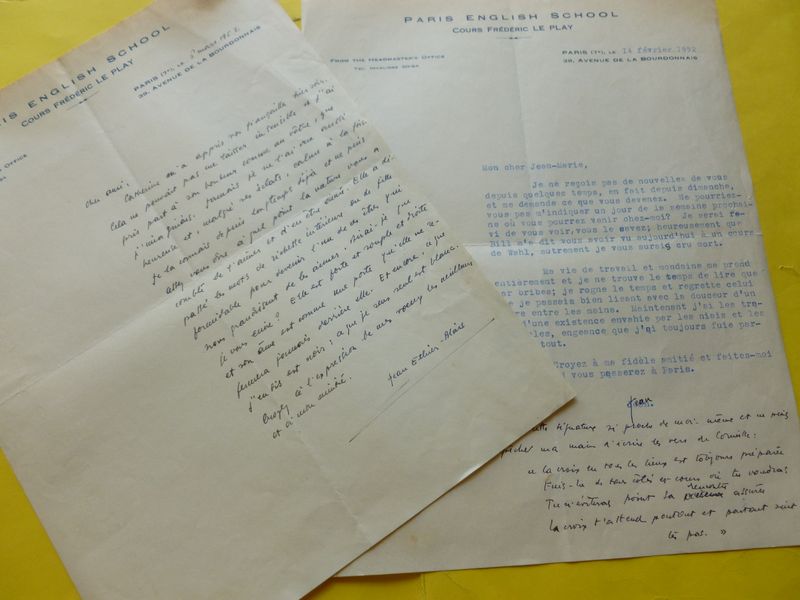 IS ENGLISH SCHOOL
COURS FRÉDÉRIC LE PLAY
OFFICE
PARIS (7e), LE mars 1952
39, AVENUE DE LA BOURDONNAIS
Cher ami,
Catherine m'a appris vos fiançailles hier soir.
Cela ne pouvait pas me laisser insensible et j'ai
pris part à son bonheur comme au vôtre, que
j'imagine. Jamais je ne l'ai vue aussi
heureuse et, malgré ses éclats, calme à la fois.
Je la connais depuis longtemps déjà et ne puis
allez vous dire à quel point la nature vous a
comblé de l'aimer et d'en être aimé. Elle a dé-
passé les mots de richesse intérieure ou de fille
formidable pour devenir l'un de ces êtres qui
nous grandissent de les aimer. Dirai-je que
je vous envie? Elle est forte et souple et droite
et son âme est comme une porte qu'elle ne re-
fermera jamais derrière elle. Et encore: ce que
j'en dis est noir; ce que je sens seul est blanc.
Croyez à l'expression de mes voeux les meilleurs
et à mon amitié.
Jean Ethier-Blais
PARIS ENGLISH SCHOOL
COURS FRÉDÉRIC LE PLAY
FROM THE HEADMASTER'S OFFICE
PARIS (7e), LE 14 février 1952
39, AVENUE DE LA BOURDONNAIS
Mon cher Jean-Marie,
Je ne reçois pas de nouvelles de vous
depuis quelques temps, en fait depuis dimanche,
et me demande ce que vous devenez. Ne pourriez-
vous pas m'indiquer un jour de la semaine prochai-
ne où vous pourrez venir chez-moi? Je serai ra-
vi de vous voir, vous le savez; heureusement que
Bill m'a dit vous avoir vu aujourd'hui à un cours
de Wahl, autrement je vous aurais cru mort.
Ma vie de travail et mondaine me prend
entièrement et je ne trouve le temps de lire que
bribes; je rogne le temps et regrette celui
je passais bien lisant avec la douceur d'un
entre les mains. Maintenant j'ai les tra-
d'une existence envahie par les niais et les
engeance que j'ai toujours fuie par-
tout.
Croyez à ma fidèle amitié et faites-moi
vous passerez à Paris.
Jean
signature si proche de moi-même et ne puis
ma main d'écrire les vers de Corneille:
« la croix en tous les lieux est toujours préparée
Fuis-la de tous côtés et cours où tu voudras
Tu n'éviteras point la rencontre assurée
La croix t'attend partout et partout suit
tes pas. »